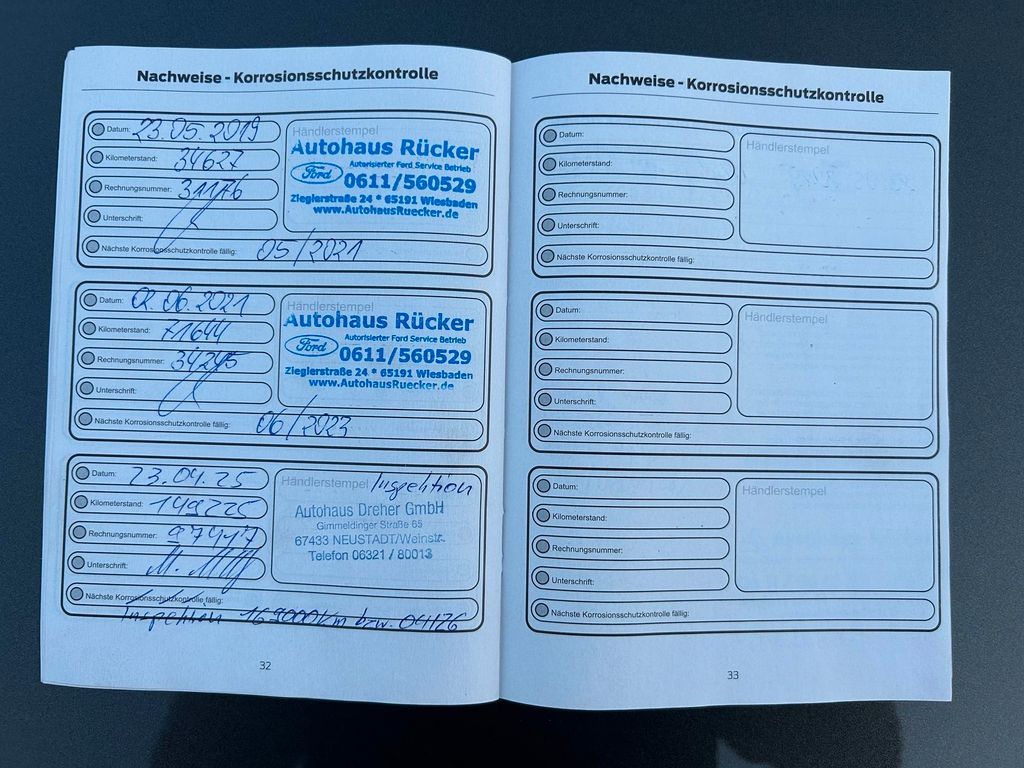 Nachweise - Korrosionsschutzkontrolle
Datum: 23.05.2019
Kilometerstand: 34627
Rechnungsnummer: 31176
Unterschrift:
Nächste Korrosionsschutzkontrolle fällig: 05/2021
Händlerstempel
Autohaus Rücker
Autorisierter Ford Service Betrieb
Ford 0611/560529
Zieglerstraße 24 * 65191 Wiesbaden
www.AutohausRuecker.de
Datum: 02.06.2021
Kilometerstand: 71644
Rechnungsnummer: 34245
Unterschrift:
Nächste Korrosionsschutzkontrolle fällig: 06/2023
Händlerstempel
Autohaus Rücker
Autorisierter Ford Service Betrieb
Ford 0611/560529
Zieglerstraße 24 * 65191 Wiesbaden
www.AutohausRuecker.de
Datum: 23.04.25
Kilometerstand: 149225
Rechnungsnummer: 97417
Unterschrift:
Nächste Korrosionsschutzkontrolle fällig:
Inspektion 169000km bzw. 04/26
Händlerstempel Inspektion
Autohaus Dreher GmbH
Gimmeldinger Straße 65
67433 NEUSTADT/Weinstr.
Telefon 06321 / 80013
32
Nachweise - Korrosionsschutzkontrolle
Datum:
Kilometerstand:
Rechnungsnummer:
Unterschrift:
Nächste Korrosionsschutzkontrolle fällig:
Händlerstempel
Datum:
Kilometerstand:
Rechnungsnummer:
Unterschrift:
Nächste Korrosionsschutzkontrolle fällig:
Händlerstempel
Datum:
Kilometerstand:
Rechnungsnummer:
Unterschrift:
Nächste Korrosionsschutzkontrolle fällig:
Händlerstempel
33